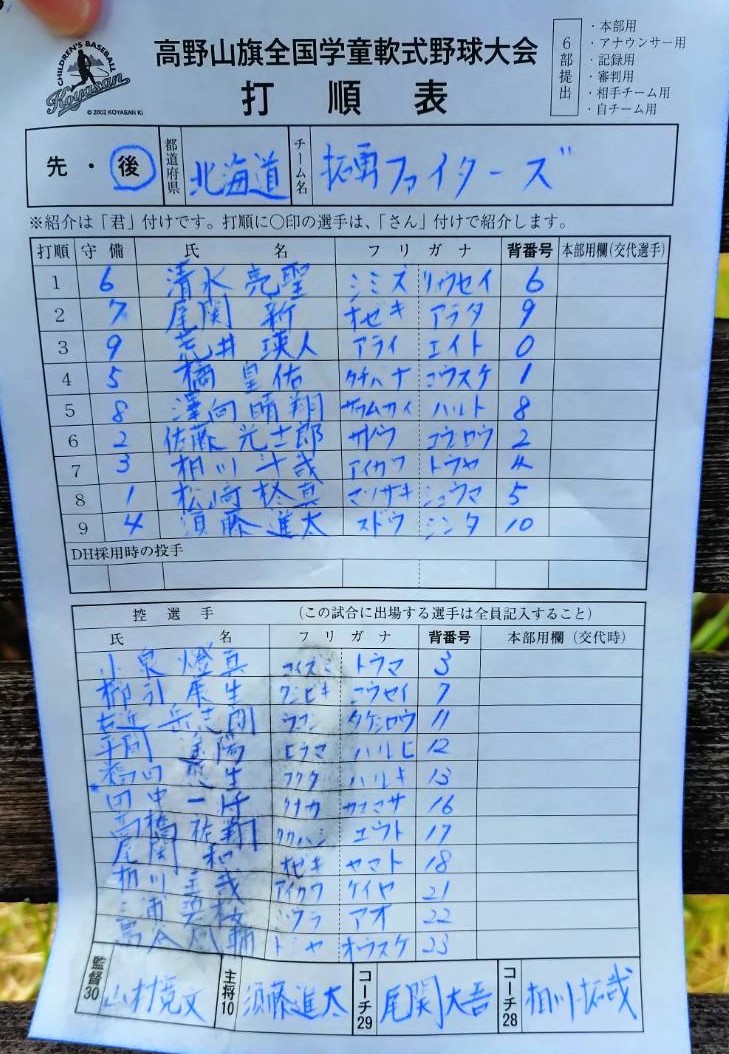 CHILDREN'S BASEBALL
Koyasan
© 2002 KOYASAN K
高野山旗全国学童軟式野球大会
打順表
6部提出
・本部用
・アナウンサー用
・記録用
・審判用
・相手チーム用
・自チーム用
先・後 都道府県 北海道 チーム名 拓勇ファイターズ
※紹介は「君」付けです。打順に〇印の選手は、「さん」付けで紹介します。
打順 守備 氏名 フリガナ 背番号 本部用欄(交代選手)
1 6 清水 亮聖 シミズ リュウセイ 6
2 7 尾関 新 オゼキ アラタ 9
3 9 荒井 瑛人 アライ エイト 0
4 5 橘 皇佑 タチバナ コウスケ 1
5 8 澤向 晴翔 サワムカイ ハルト 8
6 2 佐藤 光士郎 サトウ コウシロウ 2
7 3 相川 斗哉 アイカワ トウヤ 4
8 1 松崎 柊真 マツザキ シュウマ 5
9 4 須藤 進太 スドウ シンタ 10
DH採用時の投手
控選手 (この試合に出場する選手は全員記入すること)
氏名 フリガナ 背番号 本部用欄(交代時)
小泉 燈真 コイズミ トウマ 3
櫛引 生 クシビキ コウセイ 7
右近 岳志朗 ウコン タケシロウ 11
平間 遥陽 ヒラマ ハルヒ 12
福田 生 フクダ ハルキ 13
田中 一 タナカ カズマサ 16
高橋 祐翔 タカハシ ユウト 17
尾関 和 オゼキ ヤマト 18
相川 圭哉 アイカワ ケイヤ 21
三浦 碧 ミウラ アオ 22
ドヤ オウスケ 23
監督30 山村寛文 主将10 須藤進太 コーチ29 尾関大吾 コーチ28 相川拓哉